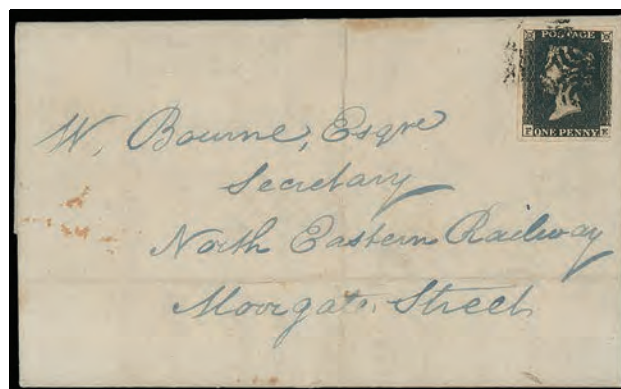 POSTAGE
ONE PENNY
W. Bourne, Esqre
Secretary
North Eastern Railway
Moorgate Street